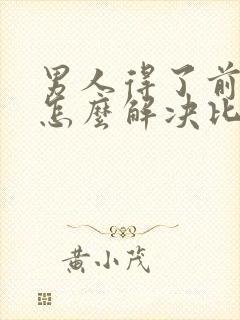 男人得了前
怎麼解决比
黄小茂